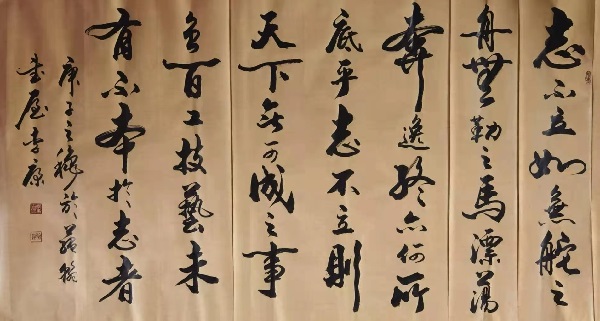 志不立如無舵之
舟無勒之馬漂蕩
奔逸終亦何所
底乎志不立則
天下無可成之事
雖百工技藝未
有不本於志者
庚子之秋於
書屋李康